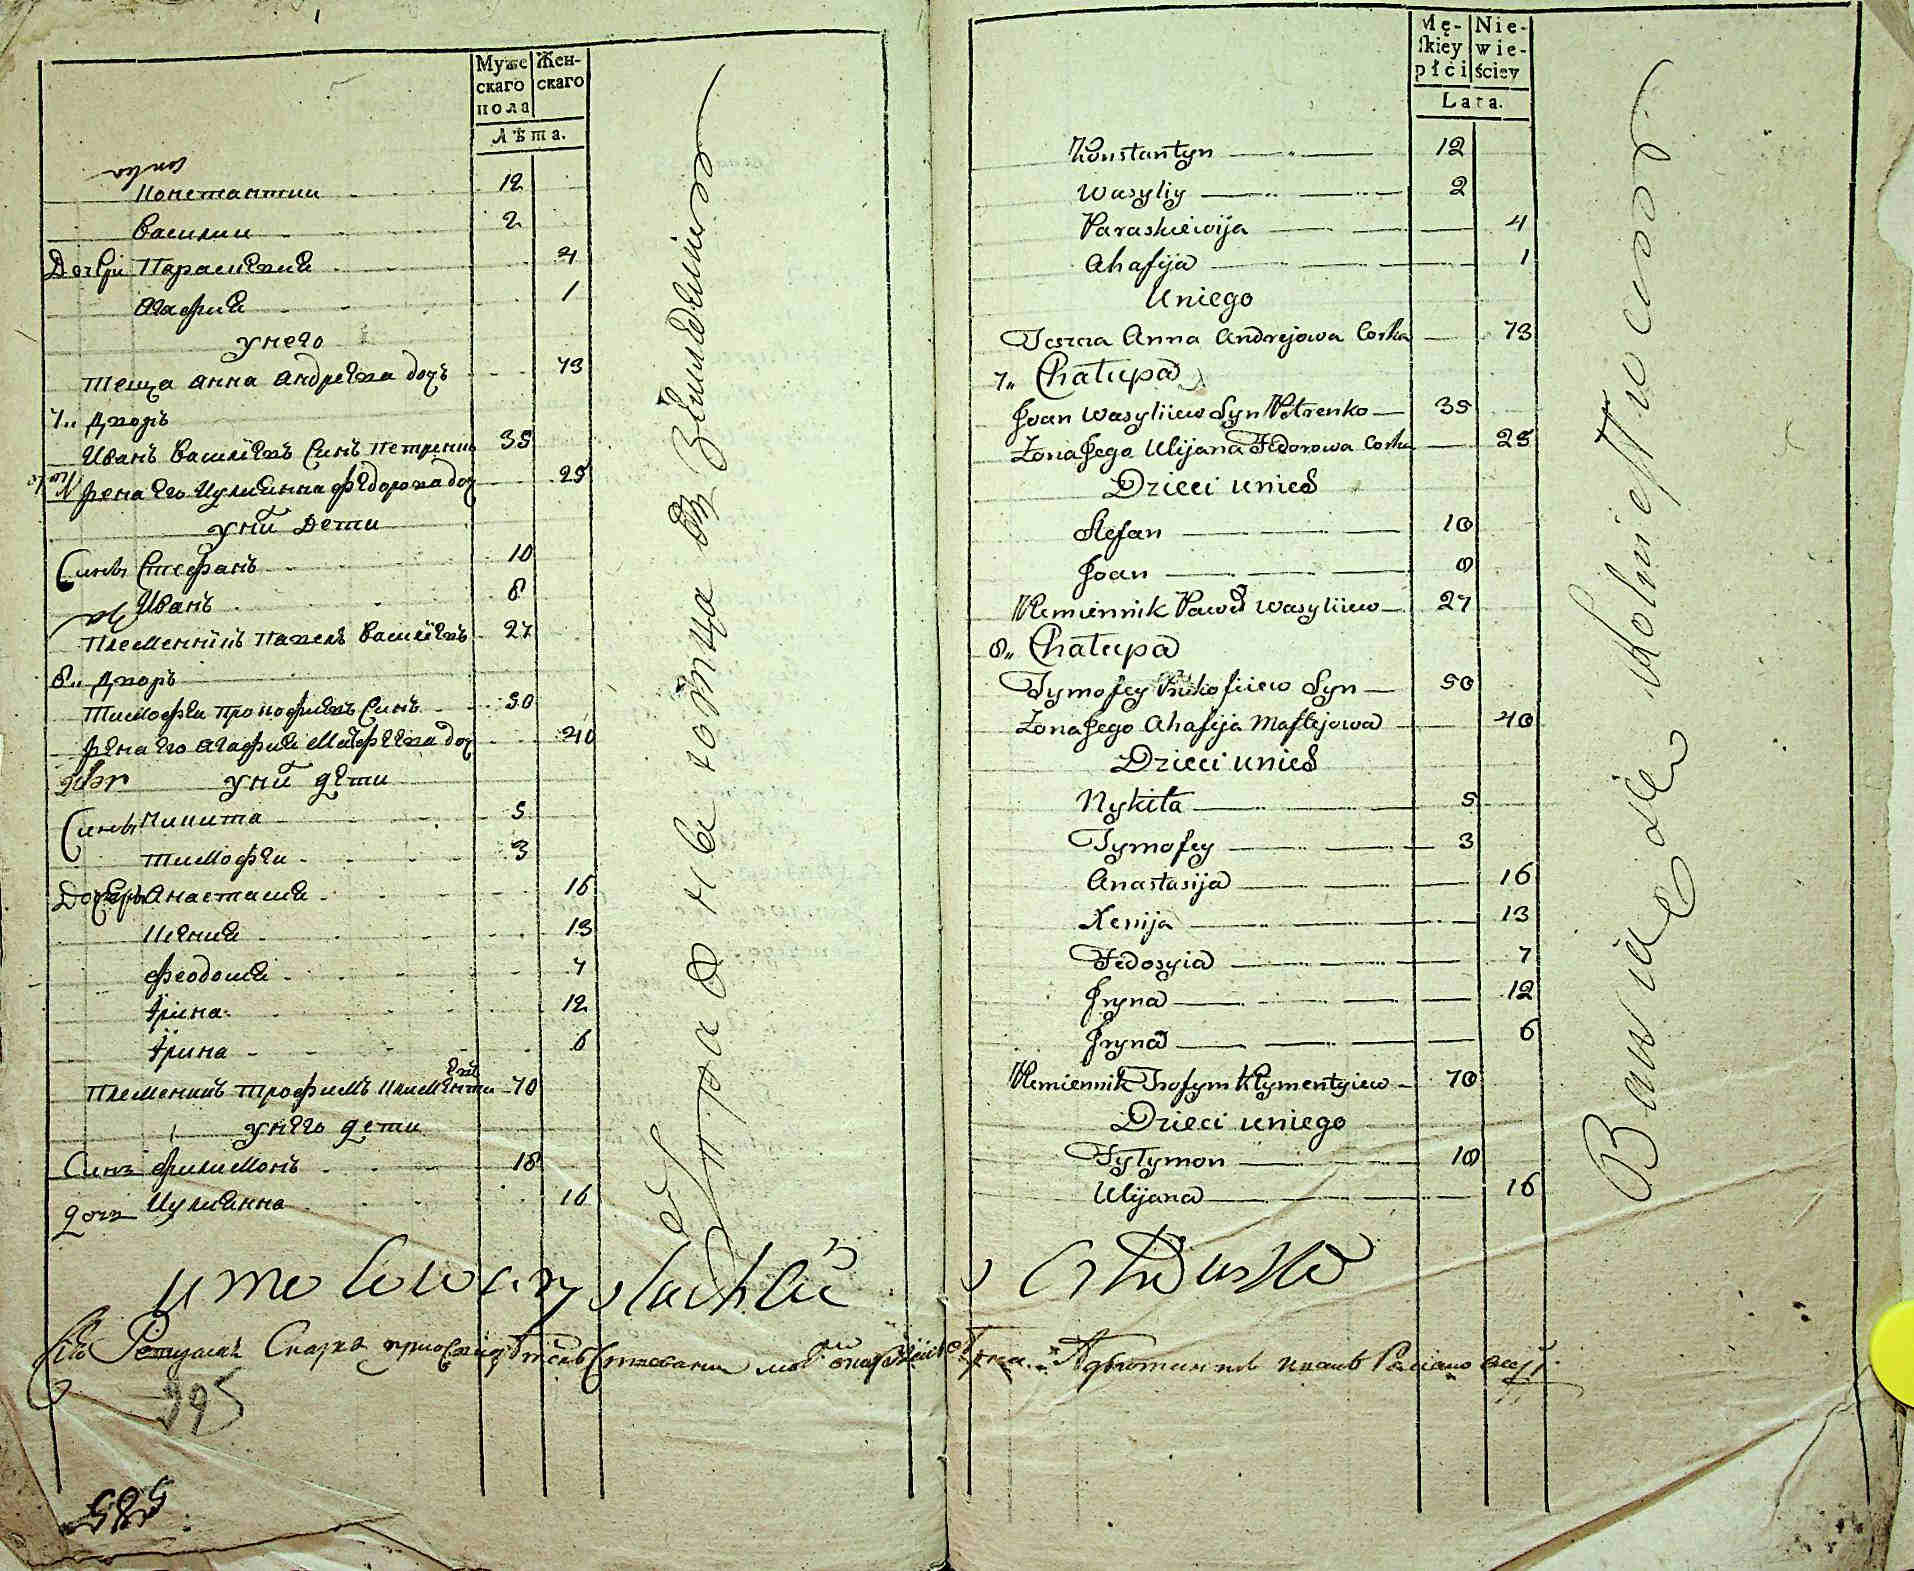 Муже
скаго
пола
Жен-
скаго
Лѣта.
Константин 12
Василии 2
Дочери Параскевия 4
Агафия 1
у него
теща анна андреева дочь 73
7,, Дворъ
Иванъ Василіевъ Синъ Петренко 35
жена его Иулиянна Федорова доч 25
у них Дети
Сины Стефанъ 10
Иванъ 8
Племенникъ Павелъ Василіевъ 27
8,, Дворъ
Тимофеи Прокофиевъ Синъ 50
жена его Агафия Матфеева доч 40
у них дети
Сины Никита 5
Тимофеи 3
Дочери Анастасия 16
Ксения 13
Феодосия 7
Ірина 12
Ірина 6
Племенникъ Трофимъ Климентиевъ 70
у него дети
Синъ Филимонъ 18
дочь Иулиянна 16
395
585
Mę-
skiey
płci
Nie-
wie-
ściey
Lata.
Konstantyn 12
Wasyliy 2
Paraskiewija 4
Ahafija 1
U niego
Teszcza Anna Andrejowa Corka 73
7,, Chałupa
Joan Wasyliiew Syn Petrenko 35
Zona Jego Ulijana Fedorowa Corka 25
Dzieci u nich
Stefan 10
Joan 8
Plemiennik Paweł Wasyliiew 27
8,, Chałupa
Tymofey Prokofiiew Syn 50
Zona Jego Ahafija Matfejowa 40
Dzieci u nich
Nykita 5
Tymofey 3
Anastasija 16
Xenija 13
Fedosyia 7
Jryna 12
Jryna 6
Plemiennik Trofym Klymentyiew 70
Dzieci u niego
Fylymon 18
Ulijana 16